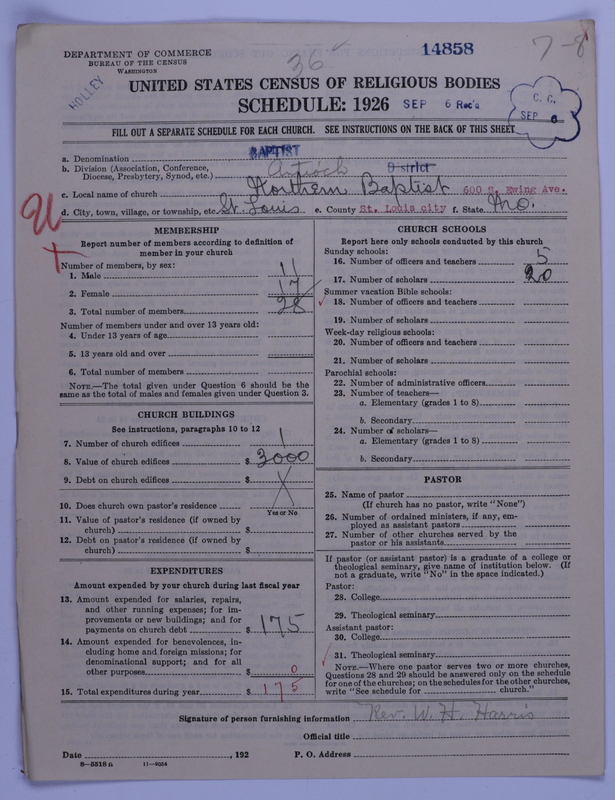 DEPARTMENT OF COMMERCE
BUREAU OF THE CENSUS
WASHINGTON
HOLLEY
36
14858
7-8
UNITED STATES CENSUS OF RELIGIOUS BODIES
SCHEDULE: 1926 SEP 6 Rec'd
C. C.
SEP 6
FILL OUT A SEPARATE SCHEDULE FOR EACH CHURCH. SEE INSTRUCTIONS ON THE BACK OF THIS SHEET
a. Denomination BAPTIST
b. Division (Association, Conference, Diocese, Presbytery, Synod, etc.) Antioch District
c. Local name of church Northern Baptist 600 S. Ewing Ave.
d. City, town, village, or township, etc. St. Louis e. County St. Louis city f. State Mo.
MEMBERSHIP
Report number of members according to definition of
member in your church
Number of members, by sex:
1. Male 11
2. Female 17
3. Total number of members 28
Number of members under and over 13 years old:
4. Under 13 years of age
5. 13 years old and over
6. Total number of members
NOTE.—The total given under Question 6 should be the
same as the total of males and females given under Question 3.
CHURCH BUILDINGS
See instructions, paragraphs 10 to 12
7. Number of church edifices 1
8. Value of church edifices $ 3000
9. Debt on church edifices $ X
10. Does church own pastor's residence
Yes or No
11. Value of pastor's residence (if owned by
church) $
12. Debt on pastor's residence (if owned by
church) $
EXPENDITURES
Amount expended by your church during last fiscal year
13. Amount expended for salaries, repairs,
and other running expenses; for im-
provements or new buildings; and for
payments on church debt $ 175
14. Amount expended for benevolences, in-
cluding home and foreign missions; for
denominational support; and for all
other purposes $ 0
15. Total expenditures during year $ 175
CHURCH SCHOOLS
Report here only schools conducted by this church
Sunday schools:
16. Number of officers and teachers 5
17. Number of scholars 20
Summer vacation Bible schools:
18. Number of officers and teachers
19. Number of scholars
Week-day religious schools:
20. Number of officers and teachers
21. Number of scholars
Parochial schools:
22. Number of administrative officers
23. Number of teachers—
a. Elementary (grades 1 to 8)
b. Secondary
24. Number of scholars—
a. Elementary (grades 1 to 8)
b. Secondary
PASTOR
25. Name of pastor
(If church has no pastor, write "None")
26. Number of ordained ministers, if any, em-
ployed as assistant pastors
27. Number of other churches served by the
pastor or his assistants
If pastor (or assistant pastor) is a graduate of a college or
theological seminary, give name of institution below. (If
not a graduate, write "No" in the space indicated.)
Pastor:
28. College
29. Theological seminary
Assistant pastor:
30. College
31. Theological seminary
NOTE.—Where one pastor serves two or more churches,
Questions 28 and 29 should be answered only on the schedule
for one of the churches; on the schedules for the other churches,
write "See schedule for church."
Signature of person furnishing information Rev. W. H. Harris
Official title
Date , 192 P. O. Address
8—5518 a 11—9054